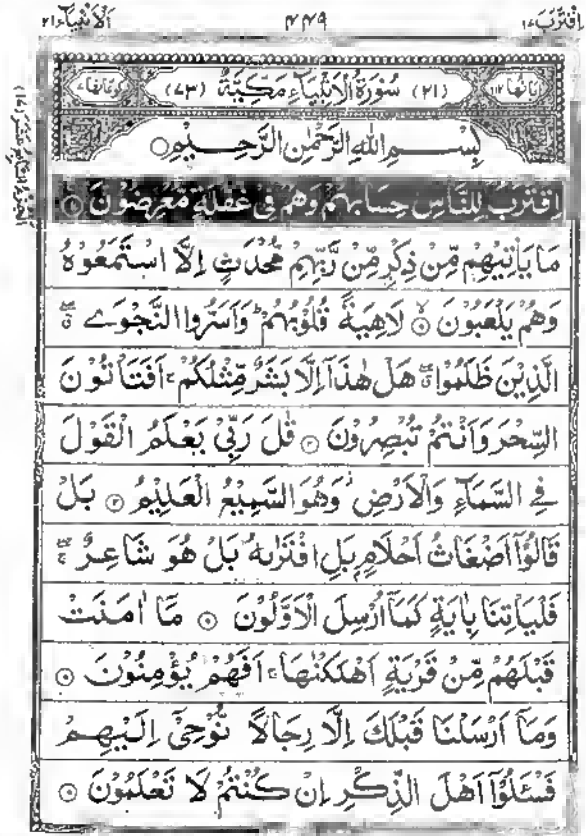 اِقْتَرَبَ ۱۷ ۴۴۹ اَلْاَنْۢبِيَآء ۲۱
اٰيَاتُهَا ۱۱۲ (۲۱) سُوْرَةُ الْاَنْۢبِيَآءِ مَكِّيَّةٌ (۷۳) رُكُوْعَاتُهَا ۷
بِسْمِ اللّٰهِ الرَّحْمٰنِ الرَّحِيْمِ
اِقْتَرَبَ لِلنَّاسِ حِسَابُهُمْ وَهُمْ فِيْ غَفْلَةٍ مُّعْرِضُوْنَ ۱
مَا يَاْتِيْهِمْ مِّنْ ذِكْرٍ مِّنْ رَّبِّهِمْ مُّحْدَثٍ اِلَّا اسْتَمَعُوْهُ
وَهُمْ يَلْعَبُوْنَ ۙ لَاهِيَةً قُلُوْبُهُمْ ؕ وَاَسَرُّوا النَّجْوَے ۖۗ
الَّذِيْنَ ظَلَمُوْا ۖۗ هَلْ هٰذَاۤ اِلَّا بَشَرٌ مِّثْلُكُمْ ۚ اَفَتَاْتُوْنَ
السِّحْرَ وَاَنْتُمْ تُبْصِرُوْنَ ۳ قٰلَ رَبِّيْ يَعْلَمُ الْقَوْلَ
فِي السَّمَآءِ وَالْاَرْضِ ؗ وَهُوَ السَّمِيْعُ الْعَلِيْمُ ۴ بَلْ
قَالُوْۤا اَضْغَاثُ اَحْلَامٍۭ بَلِ افْتَرٰىهُ بَلْ هُوَ شَاعِرٌ ۖۚ
فَلْيَاْتِنَا بِاٰيَةٍ كَمَاۤ اُرْسِلَ الْاَوَّلُوْنَ ۵ مَاۤ اٰمَنَتْ
قَبْلَهُمْ مِّنْ قَرْيَةٍ اَهْلَكْنٰهَا ۚ اَفَهُمْ يُؤْمِنُوْنَ ۶
وَمَاۤ اَرْسَلْنَا قَبْلَكَ اِلَّا رِجَالًا نُّوْحِيْۤ اِلَيْهِمْ
فَسْـَٔلُوْۤا اَهْلَ الذِّكْرِ اِنْ كُنْتُمْ لَا تَعْلَمُوْنَ ۷